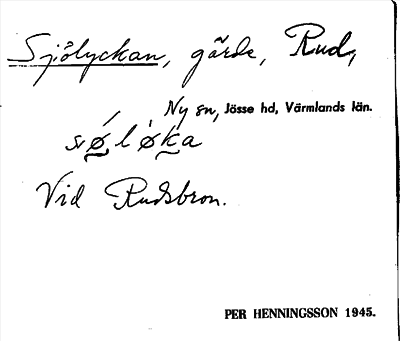 Sjölyckan, gärde, Rud,
Ny sn, Jösse hd, Värmlands län.
søløka
Vid Rudsbron.
PER HENNINGSSON 1945.